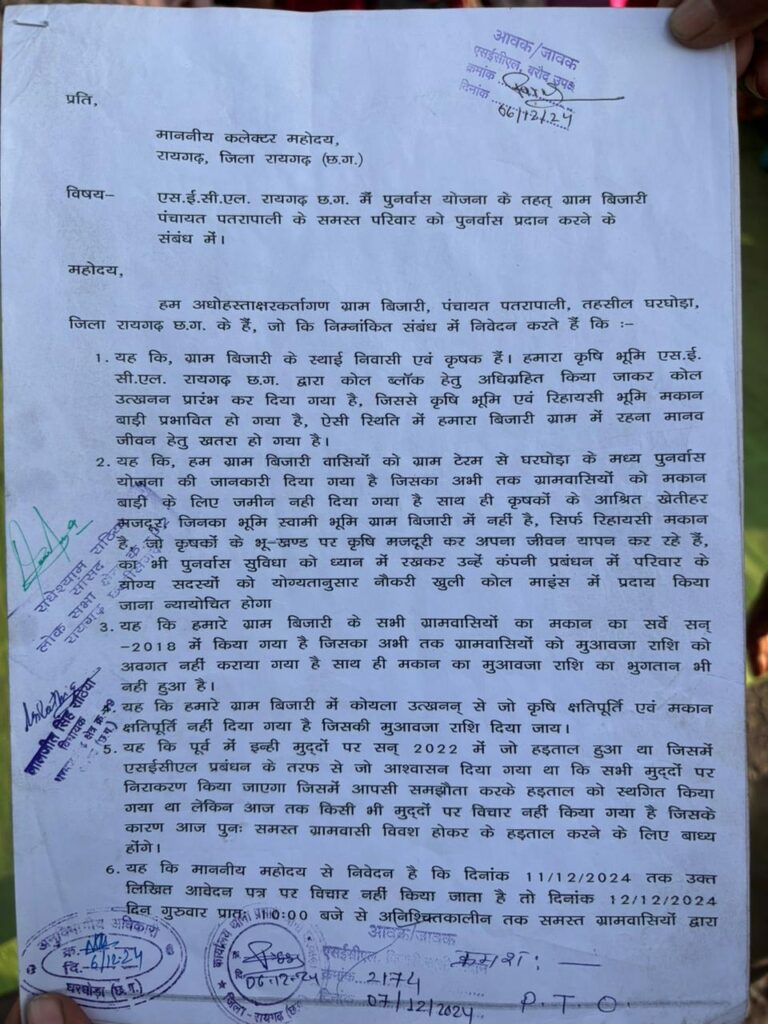 आवक/जावक
एसईसीएल, बरौद उपक्षे
क्रमांक
दिनांक 06/12/24
प्रति,
माननीय कलेक्टर महोदय,
रायगढ़, जिला रायगढ़ (छ.ग.)
विषय– एस.ई.सी.एल. रायगढ़ छ.ग. में पुनर्वास योजना के तहत् ग्राम बिजारी
पंचायत पतरापाली के समस्त परिवार को पुनर्वास प्रदान करने के
संबंध में।
महोदय,
हम अधोहस्ताक्षरकर्तागण ग्राम बिजारी, पंचायत पतरापाली, तहसील घरघोड़ा,
जिला रायगढ़ छ.ग. के हैं, जो कि निम्नांकित संबंध में निवेदन करते हैं कि :–
1. यह कि, ग्राम बिजारी के स्थाई निवासी एवं कृषक हैं। हमारा कृषि भूमि एस.ई.
सी.एल. रायगढ़ छ.ग. द्वारा कोल ब्लॉक हेतु अधिग्रहित किया जाकर कोल
उत्खनन प्रारंभ कर दिया गया है, जिससे कृषि भूमि एवं रिहायसी भूमि मकान
बाड़ी प्रभावित हो गया है, ऐसी स्थिति में हमारा बिजारी ग्राम में रहना मानव
जीवन हेतु खतरा हो गया है।
2. यह कि, हम ग्राम बिजारी वासियों को ग्राम टेरम से घरघोड़ा के मध्य पुनर्वास
योजना की जानकारी दिया गया है जिसका अभी तक ग्रामवासियों को मकान
बाड़ी के लिए जमीन नही दिया गया है साथ ही कृषकों के आश्रित खेतीहर
मजदूर, जिनका भूमि स्वामी भूमि ग्राम बिजारी में नहीं है, सिर्फ रिहायसी मकान
है, जो कृषकों के भू-खण्ड पर कृषि मजदूरी कर अपना जीवन यापन कर रहे हैं,
को भी पुनर्वास सुविधा को ध्यान में रखकर उन्हें कंपनी प्रबंधन में परिवार के
योग्य सदस्यों को योग्यतानुसार नौकरी खुली कोल माइंस में प्रदाय किया
जाना न्यायोचित होगा
3. यह कि हमारे ग्राम बिजारी के सभी ग्रामवासियों का मकान का सर्वे सन्
-2018 में किया गया है जिसका अभी तक ग्रामवासियों को मुआवजा राशि को
अवगत नहीं कराया गया है साथ ही मकान का मुआवजा राशि का भुगतान भी
नही हुआ है।
यह कि हमारे ग्राम बिजारी में कोयला उत्खनन् से जो कृषि क्षतिपूर्ति एवं मकान
क्षतिपूर्ति नहीं दिया गया है जिसकी मुआवजा राशि दिया जाय।
5. यह कि पूर्व में इन्ही मुद्दों पर सन् 2022 में जो हड़ताल हुआ था जिसमें
एसईसीएल प्रबंधन के तरफ से जो आश्वासन दिया गया था कि सभी मुद्दों पर
निराकरण किया जाएगा जिसमें आपसी समझौता करके हड़ताल को स्थगित किया
गया था लेकिन आज तक किसी भी मुद्दों पर विचार नहीं किया गया है जिसके
कारण आज पुनः समस्त ग्रामवासी विवश होकर के हड़ताल करने के लिए बाध्य
होंगे।
6. यह कि माननीय महोदय से निवेदन है कि दिनांक 11/12/2024 तक उक्त
लिखित आवेदन पत्र पर विचार नहीं किया जाता है तो दिनांक 12/12/2024
दिन गुरुवार प्रातः 10:00 बजे से अनिश्चितकालीन तक समस्त ग्रामवासियों द्वारा
राधेश्याम राठिया
सांसद
लोक सभा क्षेत्र क्र.
रायगढ़
लालजीत सिंह राठिया
विधायक
अनुविभागीय अधिकारी
क्र.
दि. 6/12/24
घरघोड़ा (छ.ग.)
06-12-24
जिला - रायगढ़ (छ.ग.)
आवक/जावक
एसईसीएल,
क्रमांक 2174
दिनांक 07/12/2024
क्रमशः —
P.T.O.